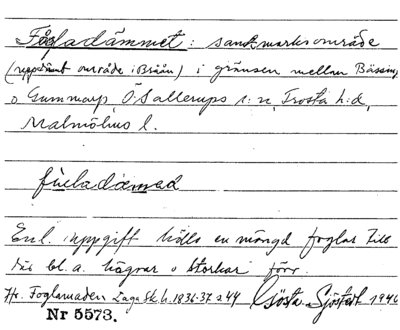 Fågladämmet: sankmarksområde
(uppdämt område i Bråån) i gränsen mellan Bässinge
o Gummarp, Ö. Sallerups s:n, Frosta h:d,
Malmöhus l.
fúladämad
Enl. uppgift hölls en mängd foglar till
där bl.a. hägrar o storkar förr.
Jfr. Foglamaden Laga Sk.h. 1836-37 s 44 Gösta Sjöstedt 1946
Nr 5573.